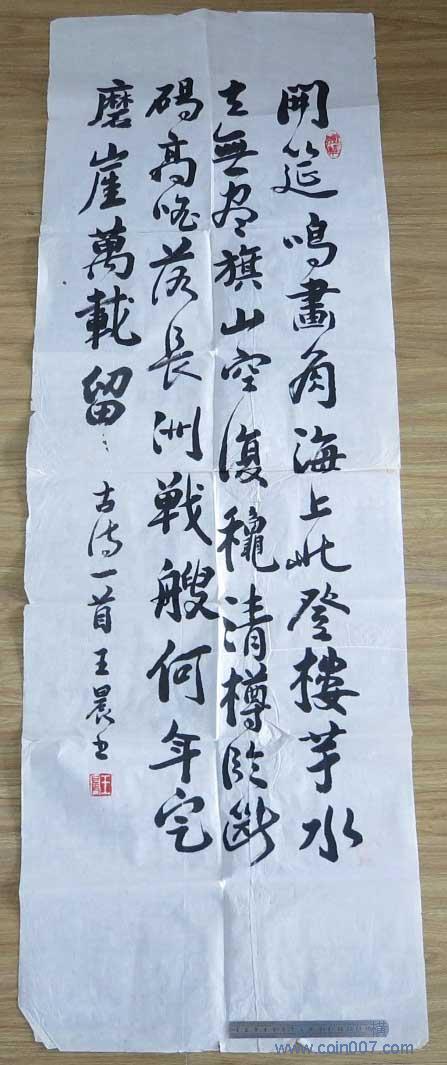 開筵鳴畫角海上此登樓芋水
去無盡旗山空復穐清樽臨斷
碣高唱落長洲戦艘何年定
磨崖萬載留
古诗一首王晨书
www.coin007.com